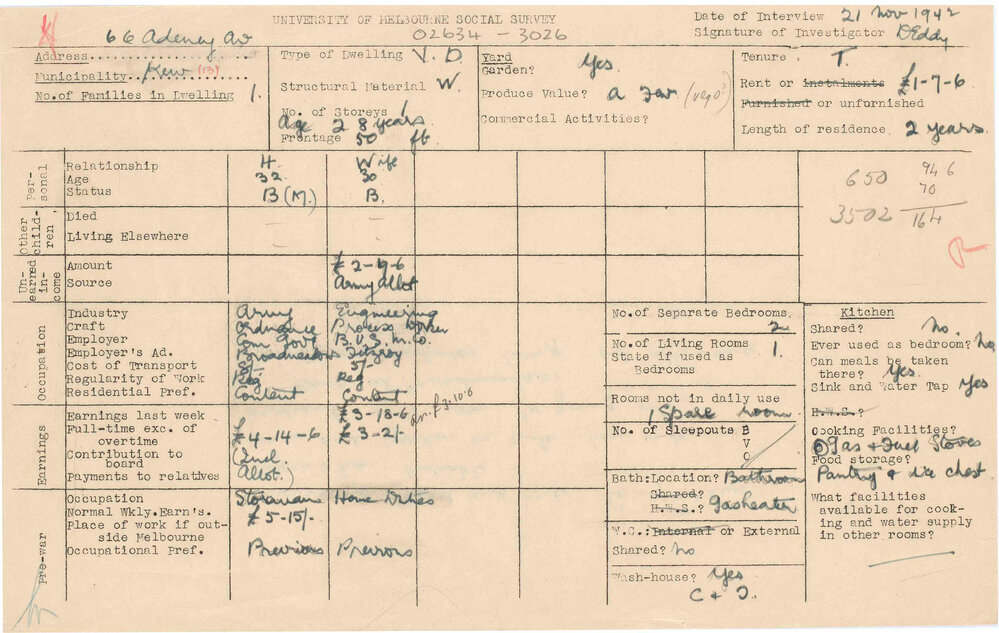 UNIVERSITY OF MELBOURNE SOCIAL SURVEY
02634 - 3026
Date of Interview 21 Nov 1942
Signature of Investigator DEddy
66 Adeney Av
Address
Municipality Kew (13)
No. of Families in Dwelling 1.
Type of Dwelling V. D.
Structural Material W.
No. of Storeys 1
Age 28 years.
Frontage 50 ft.
Yard
Garden? Yes.
Produce Value? a few (veg?)
Commercial Activities?
Tenure . T.
Rent or Instalments £1-7-6
Furnished or unfurnished
Length of residence. 2 years.
Personal
Relationship H. Wife
Age 32 30
Status B (M.) B.
650
946
70
3502
164
R
Other children
Died - -
Living Elsewhere - -
Unearned income
Amount £2-19-6
Source Army Allot
Occupation
Industry Army Engineering
Craft Ordnance Process Worker
Employer Com Govt B.U.S.M.Co.
Employer's Ad. Broadmeadows Fitzroy
Cost of Transport 5/-
Regularity of Work Reg Reg
Residential Pref. Content Content
Earnings
Earnings last week £3-18-6
Full-time exc. of overtime £4-14-6 £3-2/-
Contribution to board (Incl.
Payments to relatives Allot.)
Pre-war
Occupation Storeman Home Duties
Normal Wkly. Earn's. £5-15/-
Place of work if outside Melbourne
Occupational Pref. Previous Previous
No. of Separate Bedrooms. 2
No. of Living Rooms 1.
State if used as
Bedrooms
Rooms not in daily use
1 Spare room
No. of Sleepouts B
V
O
Bath: Location? Bathroom
Shared?
H.W.S.? Gasheater
W.C.: Internal or External
Shared? No
Wash-house? Yes
C & T.
Kitchen
Shared? No.
Ever used as bedroom? No
Can meals be taken
there? Yes.
Sink and Water Tap Yes
H.W.S.?
Cooking Facilities?
Gas & Fuel Stoves
Food storage?
Pantry & ice chest
What facilities
available for cook-
ing and water supply
in other rooms?